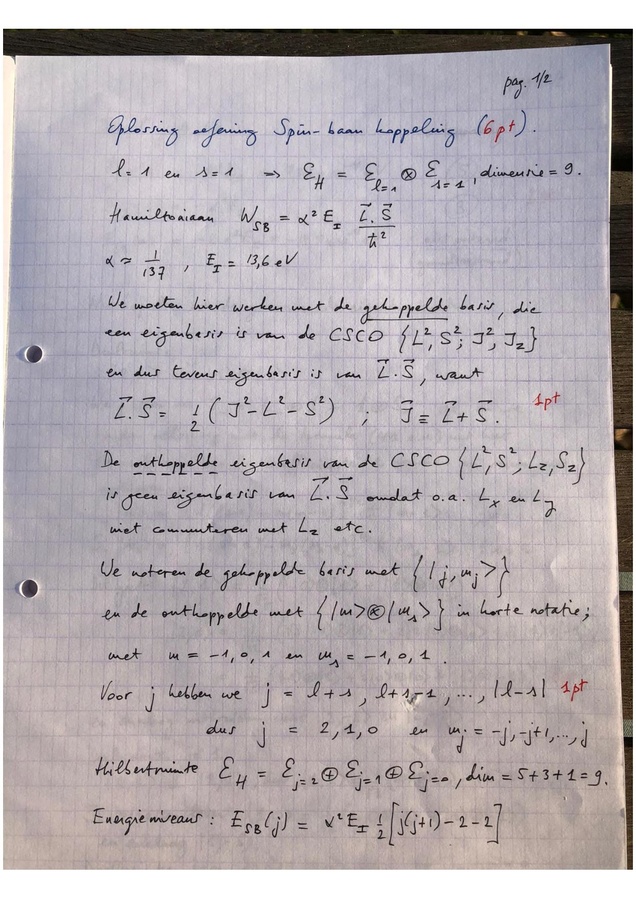 pag. 1/2
Oplossing oefening Spin-baan koppeling (6pt).
l=1 en s=1 → ℰ_H = ℰ_{l=1} ⊗ ℰ_{s=1}, dimensie = 9.
Hamiltoniaan W_SB = α² E_I (L⃗.S⃗)/ħ²
α ≈ 1/137 , E_I = 13,6 eV
We moeten hier werken met de gekoppelde basis, die
een eigenbasis is van de CSCO {L², S²; J², J_z}
en dus tevens eigenbasis is van L⃗.S⃗, want
L⃗.S⃗ = 1/2 (J²-L²-S²) ; J⃗ ≡ L⃗+S⃗. 1pt
De ontkoppelde eigenbasis van de CSCO {L², S²; L_z, S_z}
is geen eigenbasis van L⃗.S⃗ omdat o.a. L_x en L_y
niet commuteren met L_z etc.
We noteren de gekoppelde basis met {|j, m_j>}
en de ontkoppelde met {|m>⊗|m_s>} in korte notatie;
met m = -1, 0, 1 en m_s = -1, 0, 1.
Voor j hebben we j = l+s, l+s-1, ..., |l-s| 1pt
dus j = 2, 1, 0 en m_j = -j, -j+1, ..., j
Hilbertruimte ℰ_H = ℰ_{j=2} ⊕ ℰ_{j=1} ⊕ ℰ_{j=0}, dim = 5+3+1 = 9.
Energieniveaus : E_SB(j) = α² E_I 1/2 [j(j+1) - 2 - 2]